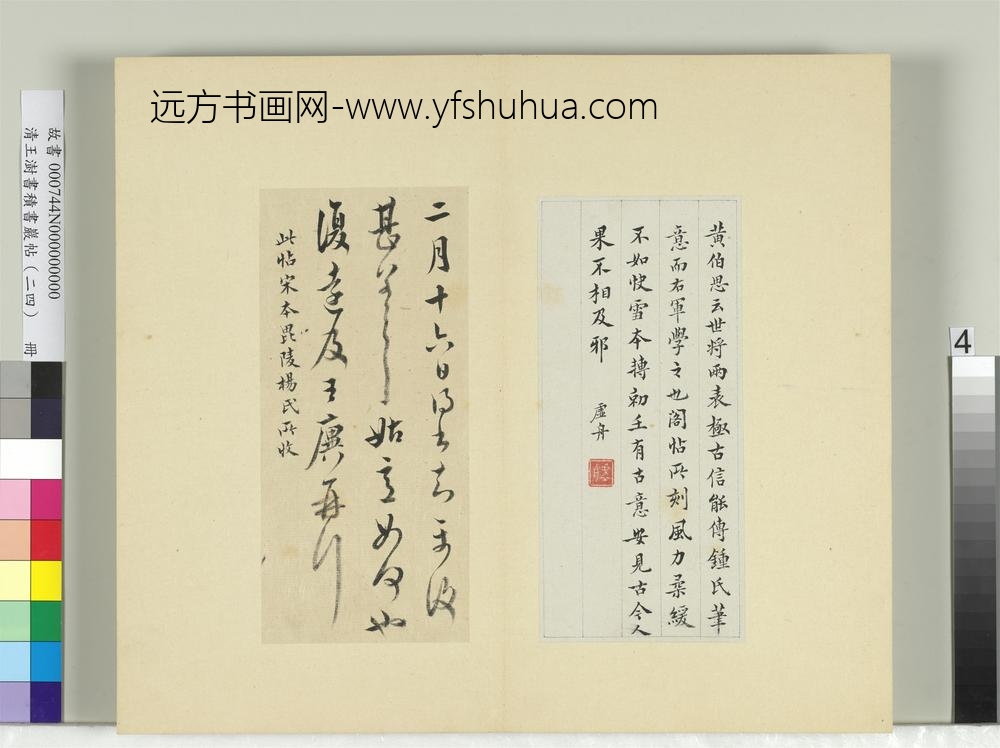 远方书画网-www.yfshuhua.com
故書 000744N000000000
清王澍書積書巖帖（二四） 冊
4
黃伯思云世將兩表極古信能傳鍾氏筆
意而右軍學之也閣帖所刻風力柔緩
不如快雪本轉有古意安見古今人
果不相及邪 虛舟
二月十六日得書知
甚 姑 如何也
復遣及王廙再
此帖宋本毘陵楊氏所收